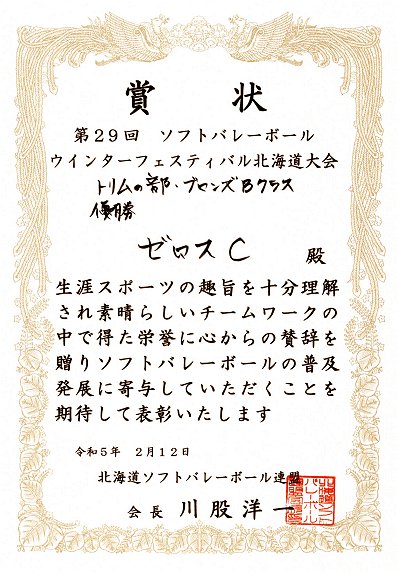 賞状
第29回 ソフトバレーボール
ウインターフェスティバル北海道大会
トリムの部・ブロンズBクラス
優勝
ゼロスC 殿
生涯スポーツの趣旨を十分理解
され素晴らしいチームワークの
中で得た栄誉に心からの賛辞を
贈りソフトバレーボールの普及
発展に寄与していただくことを
期待して表彰いたします
令和5年 2月12日
北海道ソフトバレーボール連盟
会長 川股洋一